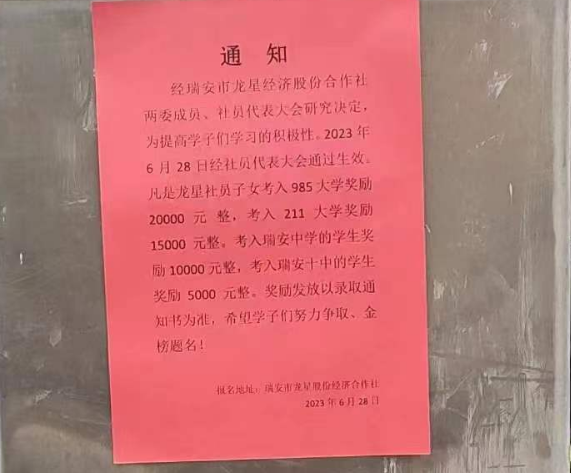 通 知
经瑞安市龙星经济股份合作社
两委成员、社员代表大会研究决定，
为提高学子们学习的积极性。2023 年
6 月 28 日经社员代表大会通过生效。
凡是龙星社员子女考入 985 大学奖励
20000 元 整，考入 211 大学奖励
15000 元整。考入瑞安中学的学生奖
励 10000 元整，考入瑞安十中的学生
奖励 5000 元整。奖励发放以录取通
知书为准，希望学子们努力争取、金
榜题名！
报名地址：瑞安市龙星股份经济合作社
2023 年 6 月 28 日